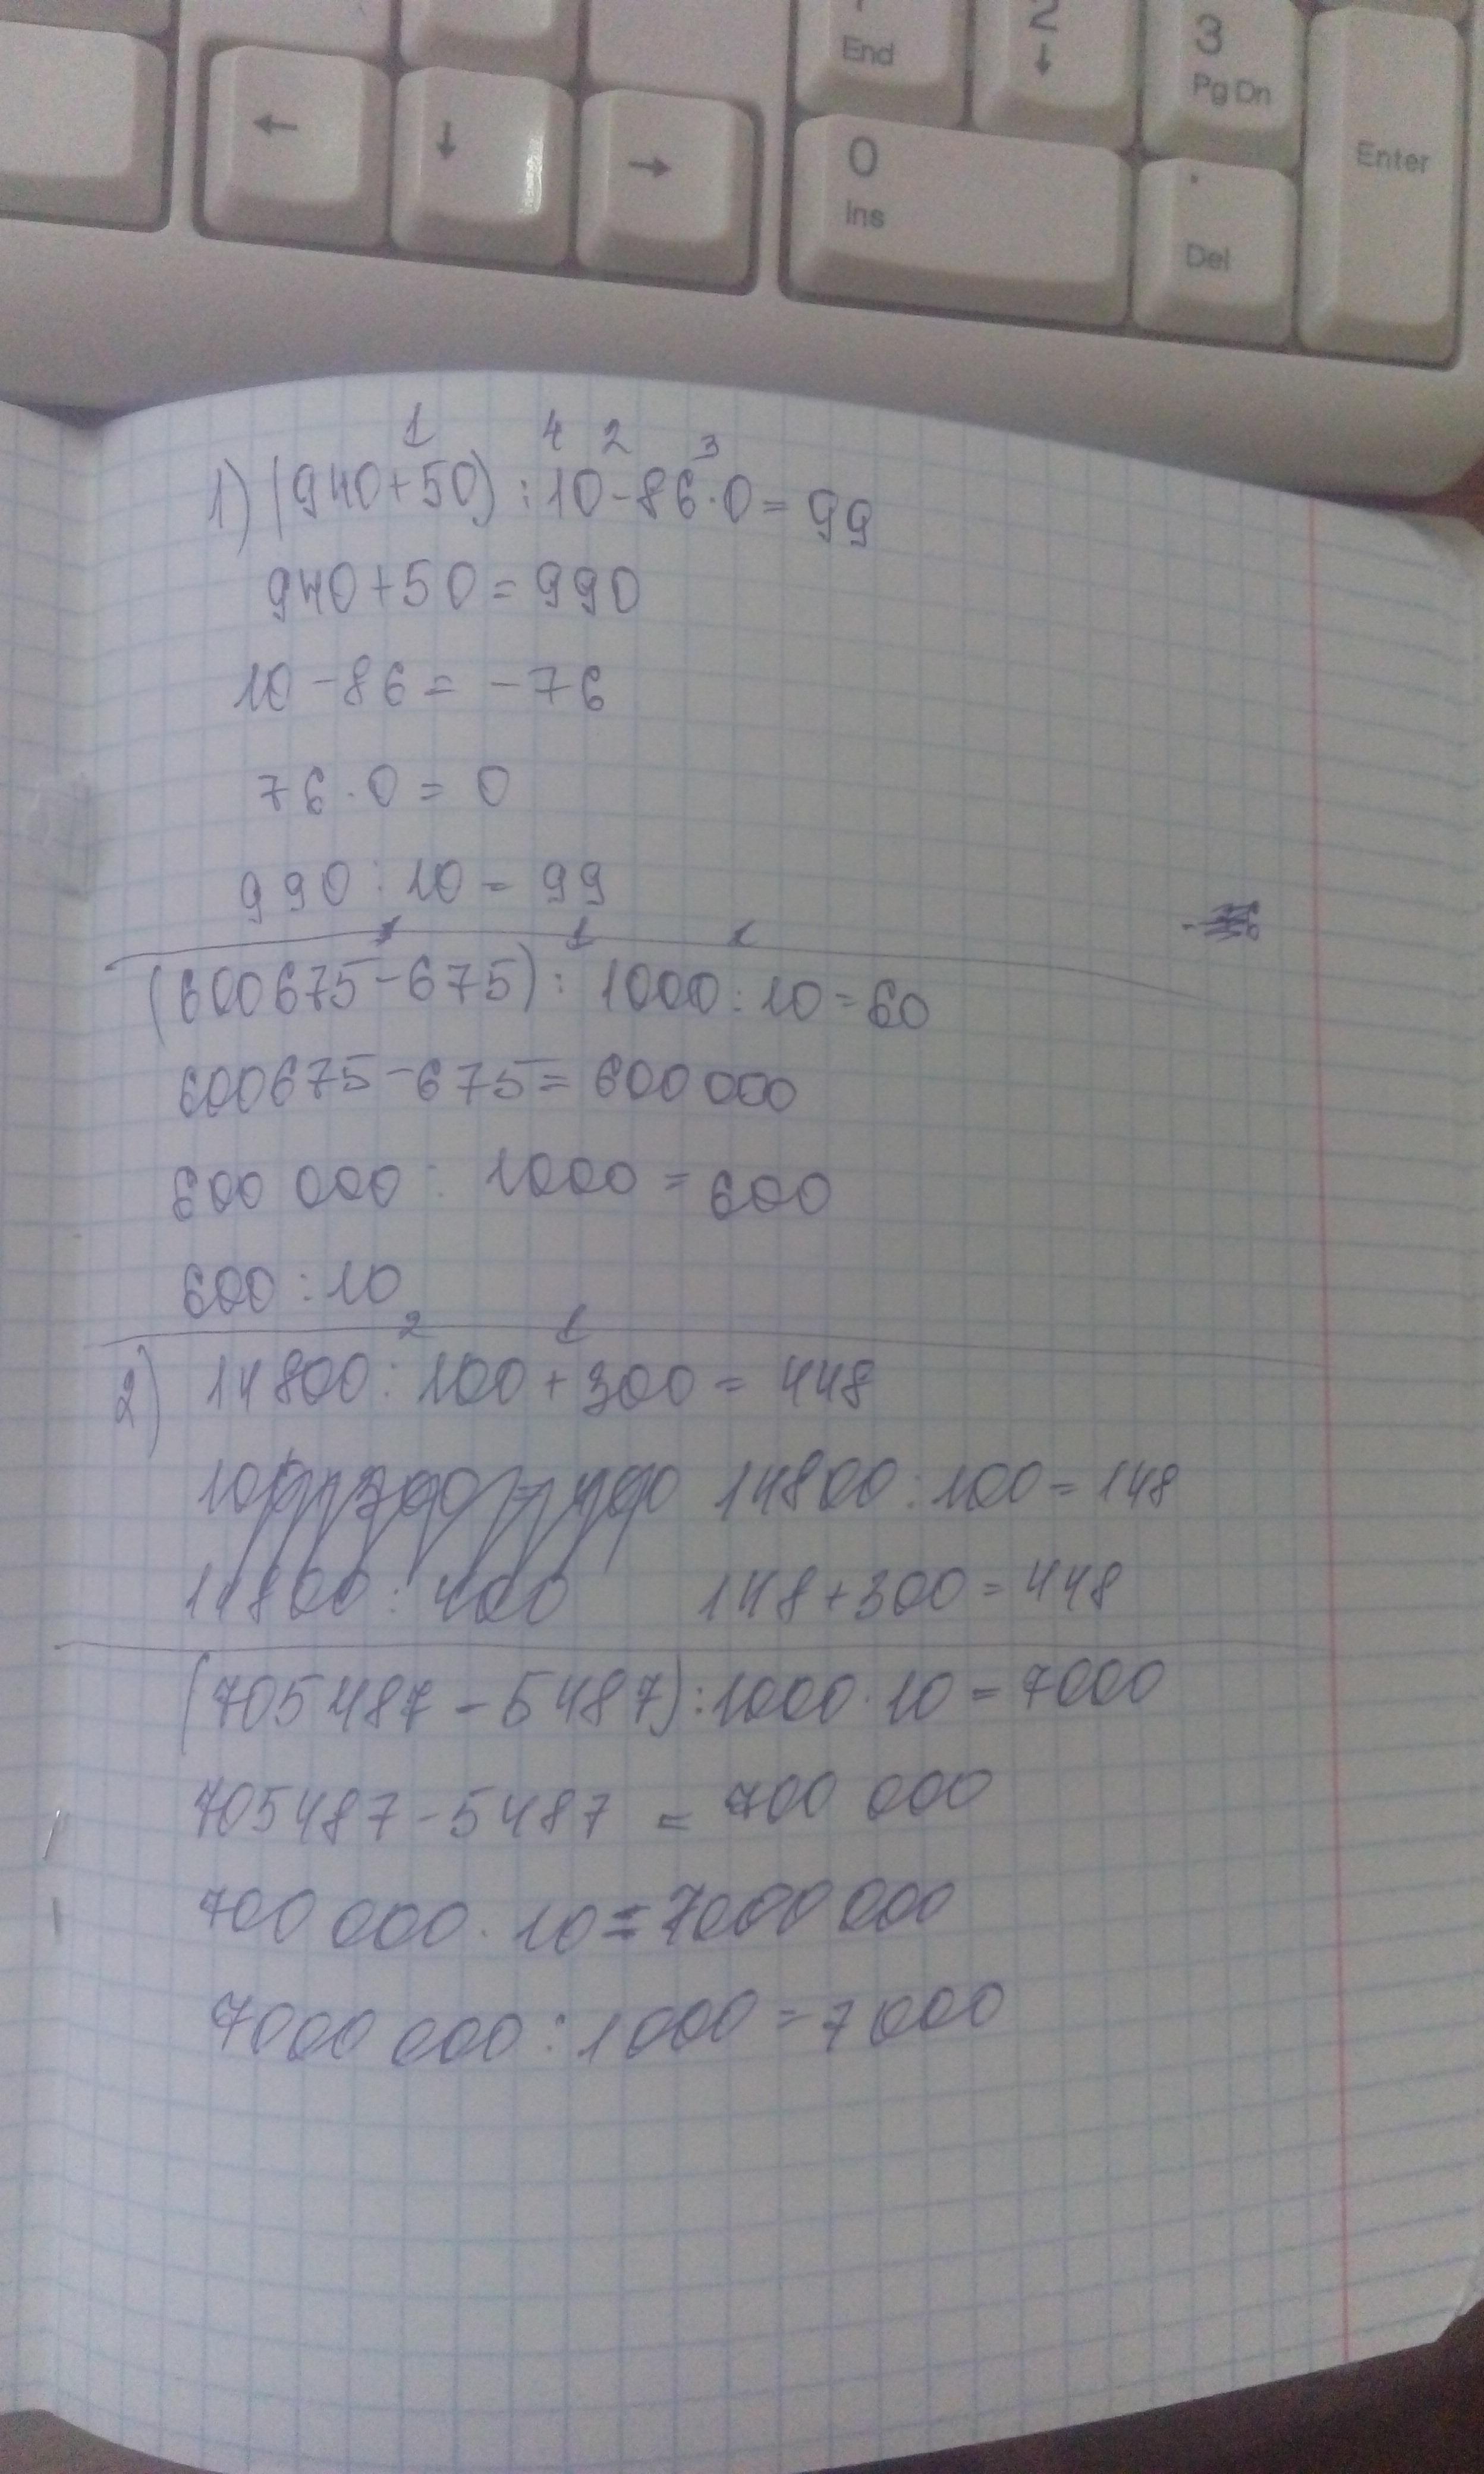 1 End
2 ↓
3 Pg Dn
Enter
← ↓ →
0 Ins
. Del
1 4 2 3
1) (940+50) : 10 - 86 · 0 = 99
940+50 = 990
10 - 86 = -76
76 · 0 = 0
990 : 10 = 99
(600675-675) : 1000 : 10 = 60
600675-675 = 600 000
600 000 : 1000 = 600
600 : 10
2 1
2) 14800 : 100 + 300 = 448
100+300=400 14800 : 100 = 148
14800 : 400 148+300 = 448
(705487-5487) : 1000 · 10 = 7000
705487-5487 = 700 000
700 000 · 10 = 7000 000
7000 000 : 1000 = 7000